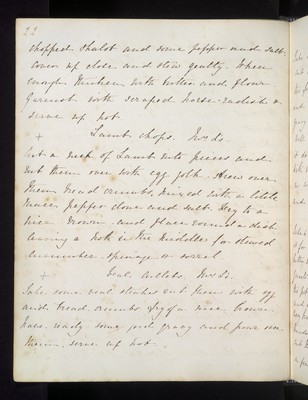 22
chopped shalot and some pepper and salt
cover up close and stew gently. When
enough thicken with butter and flour
Garnish with scraped horse-radish &
serve up hot
+ Lamb chops. Mrs ds.
Cut a neck of Lamb into pieces and
rub them over with egg yolk. Strew over
them bread crumbs, mixed with a little
mace, pepper clove and salt. Fry to a
nice brown and place round a dish
leaving a hole in the middle for stewed
cucumber, spinage or sorrel
+ Veal cutlets. Mrs ds.
Take some veal steaks rub them with egg
and bread crumbs fry of a nice brown
have ready some good gravy and pour over
them. serve up hot.